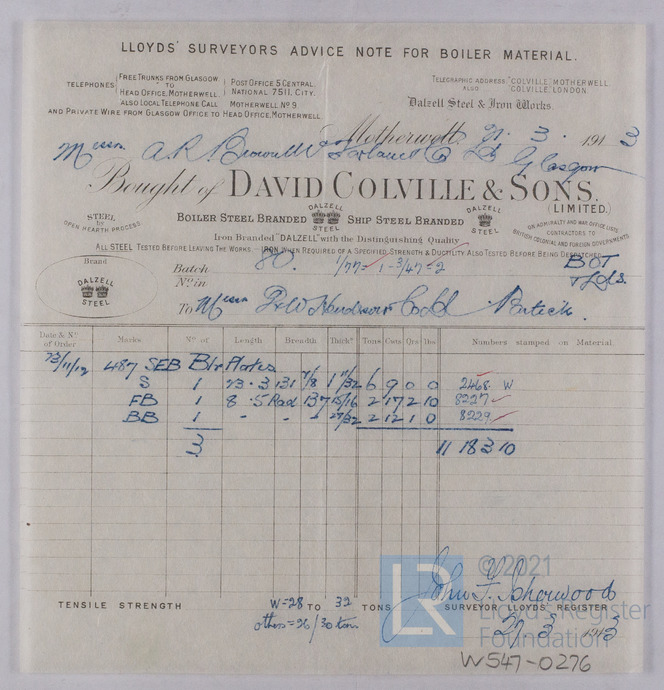 LLOYDS' SURVEYORS ADVICE NOTE FOR BOILER MATERIAL.
TELEPHONES
FREE TRUNKS FROM GLASGOW
TO
HEAD OFFICE, MOTHERWELL.
ALSO LOCAL TELEPHONE CALL
POST OFFICE 5 CENTRAL.
NATIONAL 7511, CITY.
MOTHERWELL Nº 9
AND PRIVATE WIRE FROM GLASGOW OFFICE TO HEAD OFFICE, MOTHERWELL
TELEGRAPHIC ADDRESS "COLVILLE," MOTHERWELL
ALSO "COLVILLE," LONDON.
Dalzell Steel & Iron Works.
Motherwell, 21. 3. 1913
Messrs A. R. Brown Co Ld Glasgow
Bought of DAVID COLVILLE & SONS.
(LIMITED.)
STEEL
by
OPEN HEARTH PROCESS
BOILER STEEL BRANDED DALZELL STEEL SHIP STEEL BRANDED DALZELL STEEL
ON ADMIRALTY AND WAR OFFICE LISTS
CONTRACTORS TO
BRITISH COLONIAL AND FOREIGN GOVERNMENTS
Iron Branded "DALZELL" with the Distinguishing Quality
ALL STEEL TESTED BEFORE LEAVING THE WORKS. IRON WHEN REQUIRED OF A SPECIFIED STRENGTH & DUCTILITY ALSO TESTED BEFORE BEING DESPATCHED
Brand
DALZELL
STEEL
Batch 80. 1/77 = 1 - 3/47 = 2 BOT
Nº in
To Messrs D & W Henderson Co Ld Partick.
Date & Nº of Order Marks Nº of Length Breadth Thickˢ Tons Cwts Qrs lbs Numbers stamped on Material.
23/11/12 487 SEB Blr Plates
S 1 23. 3 131 7/8 1 11/32 6 9 0 0 2468 W
FB 1 8. 5 Rad 137 15/16 2 17 2 10 8227
BB 1 - - - 27/32 2 12 1 0 8229
3 11 18 3 10
TENSILE STRENGTH W=28 TO 32 TONS
others = 26/30 tons
John F. Sherwood
SURVEYOR LLOYDS' REGISTER
21 3 1913
LR © 2021
Lloyd's Register
Foundation
W547-0276